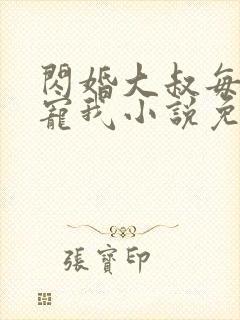 閃婚大叔每
寵我小說免
張寶印